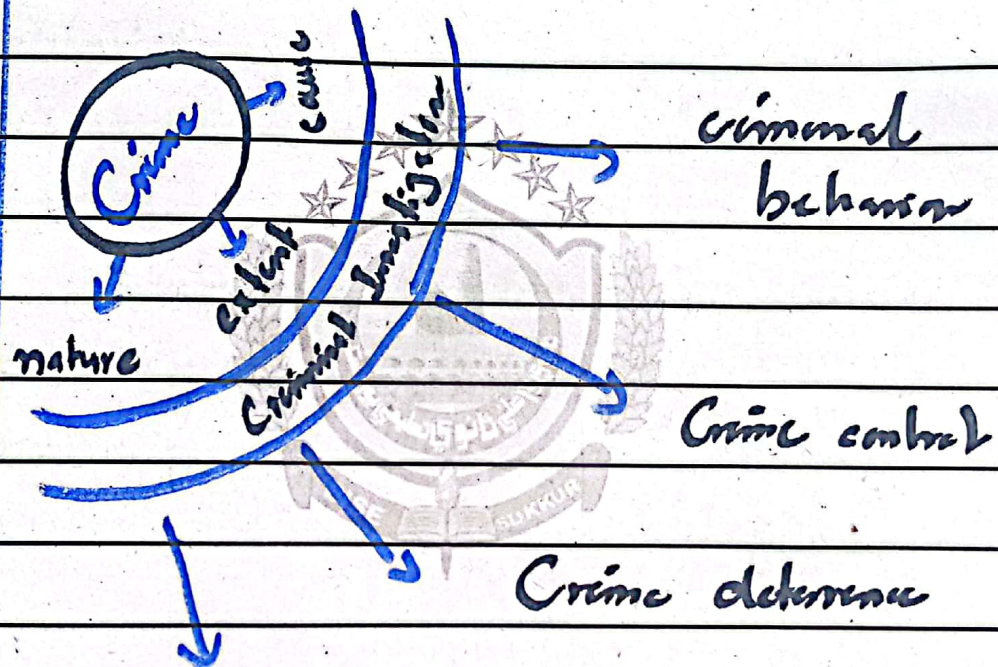 Crime
cause
extent
nature
Criminal Investigation
criminal
behavior
Crime control
Crime deterrence
SUKKUR